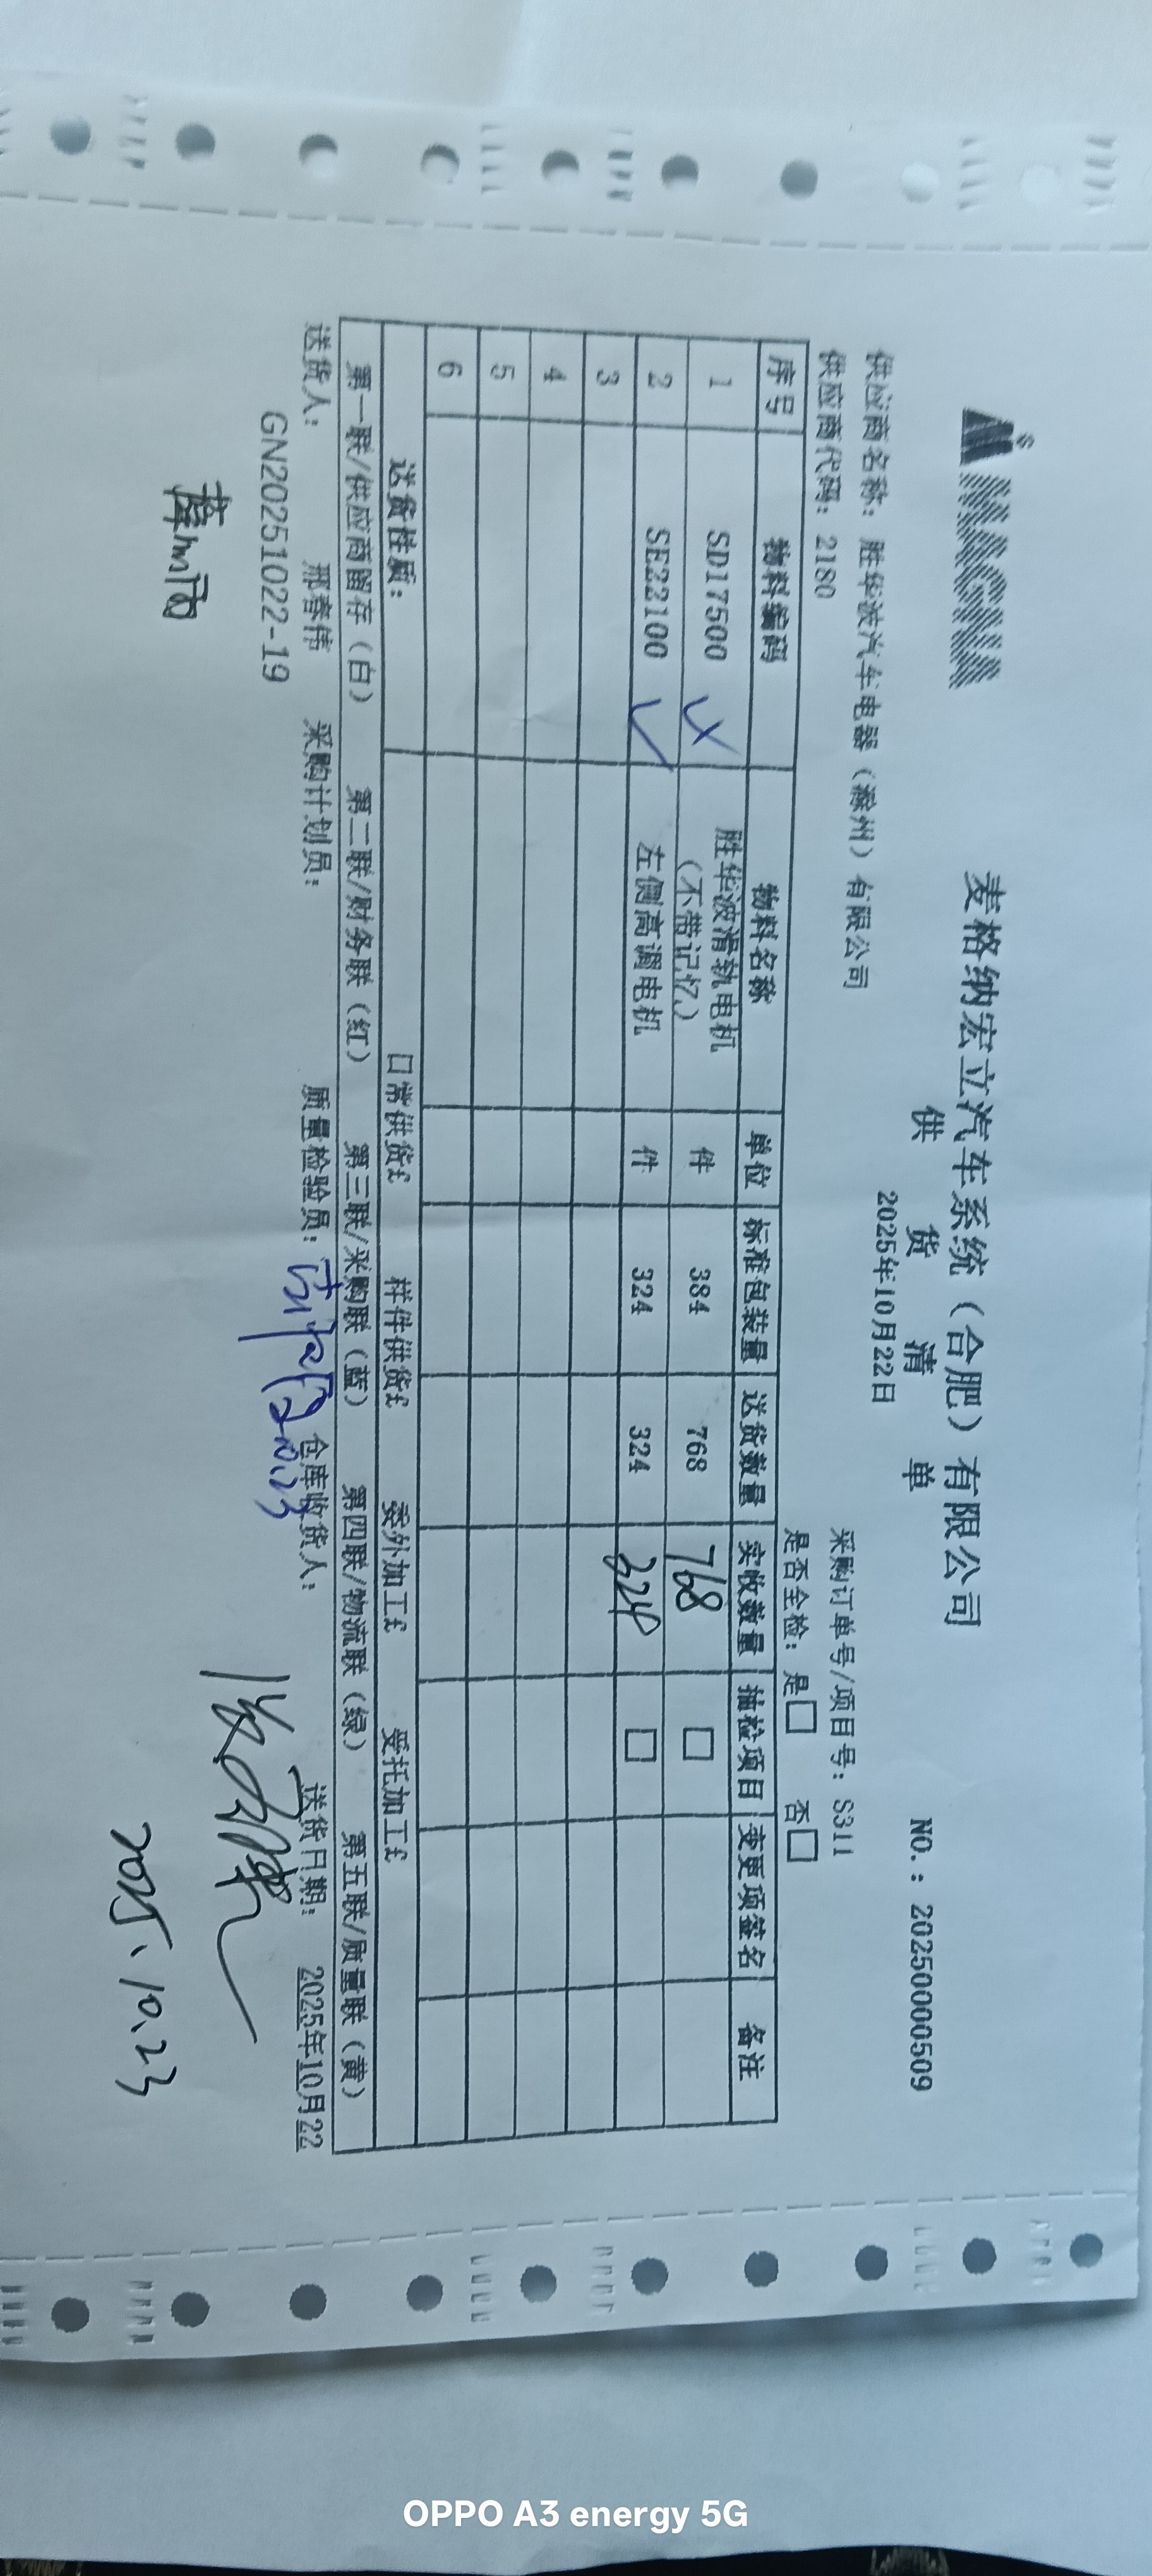 MAGNA
麦格纳宏立汽车系统（合肥）有限公司
供 货 清 单
2025年10月22日
NO.: 20250000509
供应商名称: 胜华波汽车电器（滁州）有限公司
采购订单号/项目号: S311
供应商代码: 2180
是否全检: 是□ 否□
序号 物料编码 物料名称 单位 标准包装量 送货数量 实收数量 抽检项目 变更项签名 备注
1 SD17500 胜华波滑轨电机（不带记忆） 件 384 768 768 □
2 SE22100 左侧高调电机 件 324 324 324 □
3
4
5
6
送货性质: 日常供货£ 样件供货£ 委外加工£ 受托加工£
第一联/供应商留存（白） 第二联/财务联（红） 第三联/采购联（蓝） 第四联/物流联（绿） 第五联/质量联（黄）
送货人: 邢春伟 采购计划员: 质量检验员: 10.23 仓库收货人: 送货日期: 2025年10月22
GN20251022-19
2025、10.23
OPPO A3 energy 5G